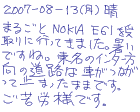 2007-08-13(月)晴
まるごとNOKIA E61を受
取りに行てきました。暑い
ですね。東名のインター方
向の道路は車がつながっ
て止まったままです。
ご苦労様です。